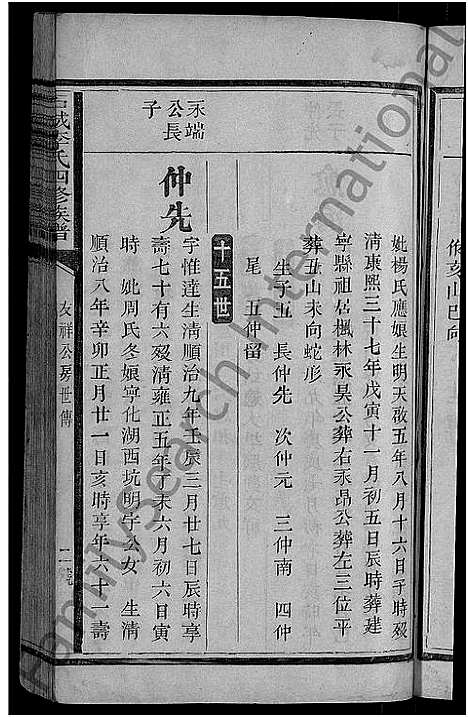 妣楊氏應娘生明天啟五年八月十六日子時歿
清康熙三十七年戊寅十一月初五日辰時葬建
寧縣祖居楓林永昊公葬右永昂公葬左三位平
葬丑山未向蛇形
生子五　長仲先　次仲元　三仲南　四仲
尾　五仲留
十五世
永端
公長
子
仲先
字惟達生清順治九年壬辰三月廿七日辰時享
壽七十有六歿清雍正五年丁未六月初六日寅
時　妣周氏冬娘寧化湖西坑明宇公女　生清
順治八年辛卯正月廿一日亥時享年六十一壽
城李氏四修族譜
友祥公房世傳
二
FamilySearch International